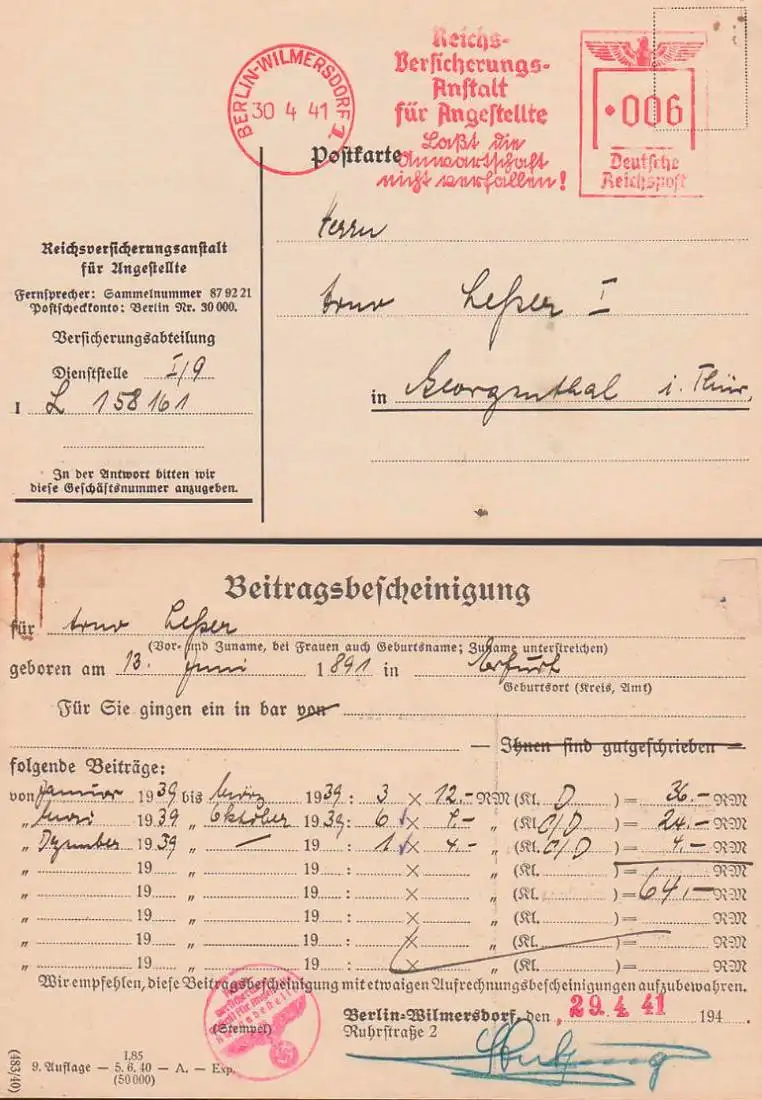 BERLIN-WILMERSDORF 1
30 4 41
Reichs-
Versicherungs-
Anstalt
für Angestellte
Laßt die
Anwartschaft
nicht verfallen!
006
Deutsche
Reichspost
Postkarte
Herrn
Arno Leßer I
in Georgenthal i. Thür.
Reichsversicherungsanstalt
für Angestellte
Fernsprecher: Sammelnummer 87 92 21
Postscheckkonto: Berlin Nr. 30 000.
Versicherungsabteilung
Dienststelle I/9
I L 158161
In der Antwort bitten wir
diese Geschäftsnummer anzugeben.
Beitragsbescheinigung
für Arno Leßer
(Vor- und Zuname, bei Frauen auch Geburtsname; Zuname unterstreichen)
geboren am 13. Juni 1891 in Erfurt
Geburtsort (Kreis, Amt)
Für Sie gingen ein in bar von
— Ihnen sind gutgeschrieben —
folgende Beiträge:
von Januar 1939 bis März 1939: 3 × 12.- RM (Kl. D) = 36.- RM
„ März 1939 „ Oktober 1939: 6 × 4.- „ (Kl. C/D) = 24.- RM
„ Dezember 1939 „ — 19 : 1 × 4.- „ (Kl. C/D) = 4.- RM
„ 19 „ 19 : × „ (Kl. ) = RM
„ 19 „ 19 : × „ (Kl. ) = 64.- RM
„ 19 „ 19 : × „ (Kl. ) = RM
„ 19 „ 19 : × „ (Kl. ) = RM
„ 19 „ 19 : × „ (Kl. ) = RM
Wir empfehlen, diese Beitragsbescheinigung mit etwaigen Aufrechnungsbescheinigungen aufzubewahren.
(Stempel)
Berlin-Wilmersdorf, den 29.4.41 194
Ruhrstraße 2
I.85
9. Auflage — 5. 6. 40 — A. — Exp.
(50 000)
(483/40)